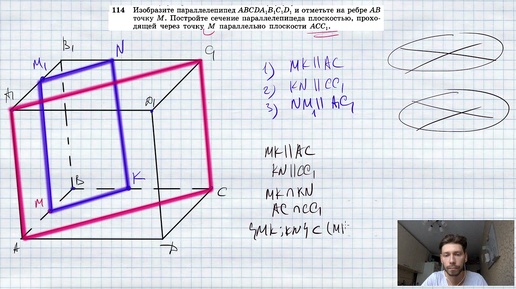 114 Изобразите параллелепипед ABCDA₁B₁C₁D₁ и отметьте на ребре AB
точку M. Постройте сечение параллелепипеда плоскостью, прохо-
дящей через точку M параллельно плоскости ACC₁.
B₁
N
C₁
M₁
A₁
D₁
B
K
C
M
A
D
1) MK||AC
2) KN||CC₁
3) NM₁||AC₁
MK||AC
KN||CC₁
MK∩KN
AC∩CC₁
{MK;KN}⊂(M